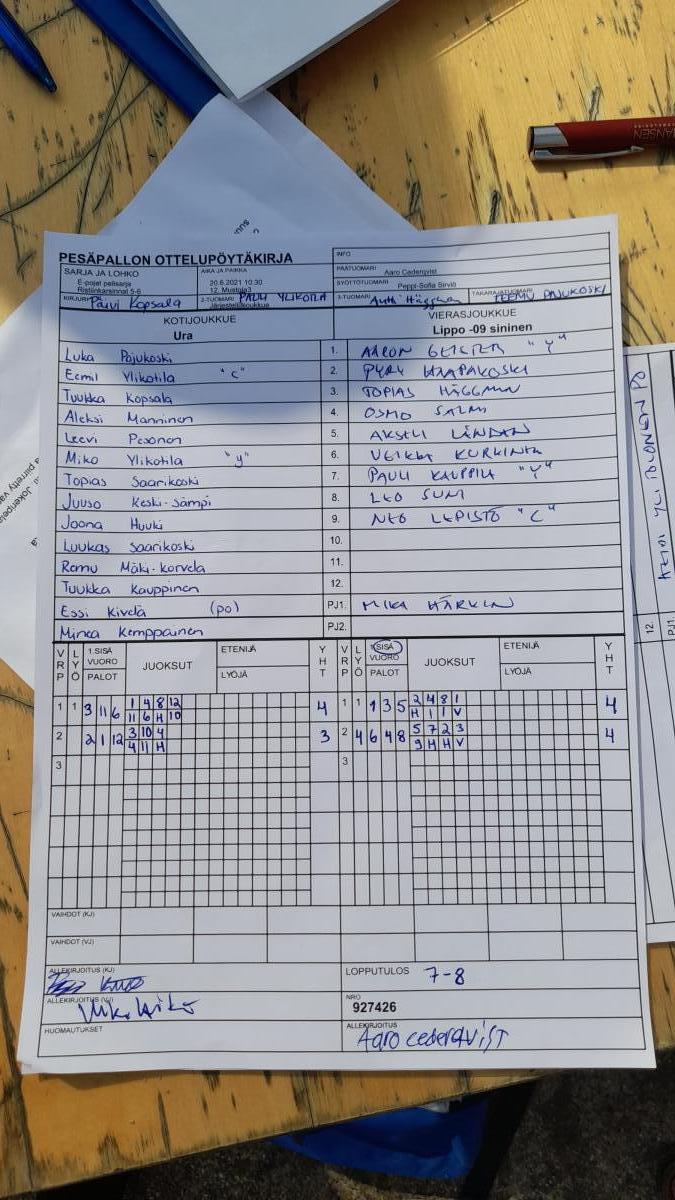 PESÄPALLON OTTELUPÖYTÄKIRJA
INFO
SARJA JA LOHKO
E-pojat pelisarja
Ristiinkarsinnat 5-6
AIKA JA PAIKKA
20.6.2021 10:30
12. Mustola3
PÄÄTUOMARI Aaro Cederqvist
SYÖTTÖTUOMARI Peppi-Sofia Sirviö
KIRJURI Päivi Kopsala
2-TUOMARI PAULI YLIKOTILA
Järjestelijoukkue
3-TUOMARI Antti Häggman
TAKARAJATUOMARI TEEMU PAJUKOSKI
KOTIJOUKKUE
Ura
VIERASJOUKKUE
Lippo -09 sininen
Luka Pajukoski 1. AARON GEISLER "Y"
Eemil Ylikotila "C" 2. PYRY HAAPAKOSKI
Tuukka Kopsala 3. TOPIAS HÄGGMAN
Aleksi Manninen 4. OSMO SALMI
Leevi Pesonen 5. AKSELI LINDAN
Miko Ylikotila "y" 6. VEIKKA KURKINEN
Topias Saarikoski 7. PAULI KAUPPILA "Y"
Juuso Keski-Sämpi 8. LEO SUNI
Joona Huuki 9. NEO LEPISTÖ "C"
Luukas Saarikoski 10.
Remu Mäki-Korvela 11.
Tuukka Kauppinen 12.
Essi Kivelä (po) PJ1. MIKA HÄRKIN
Minea Kemppainen PJ2.
VRP LYÖ 1.SISÄ VUORO PALOT JUOKSUT ETENIJÄ LYÖJÄ YHT
VRP LYÖ 1.SISÄ VUORO PALOT JUOKSUT ETENIJÄ LYÖJÄ YHT
1 1 3 11 6 1 4 8 12 4 1 1 1 3 5 2 4 8 1 4
11 6 H 10 H 1 1 V
2 2 1 12 3 10 4 3 2 4 6 4 8 5 7 2 3 4
4 11 H 9 H H V
3 3
VAIHDOT (KJ)
VAIHDOT (VJ)
ALLEKIRJOITUS (KJ)
LOPPUTULOS 7-8
ALLEKIRJOITUS (VJ)
NRO
927426
HUOMAUTUKSET
ALLEKIRJOITUS
Aaro cederqvist
12.
PJ1